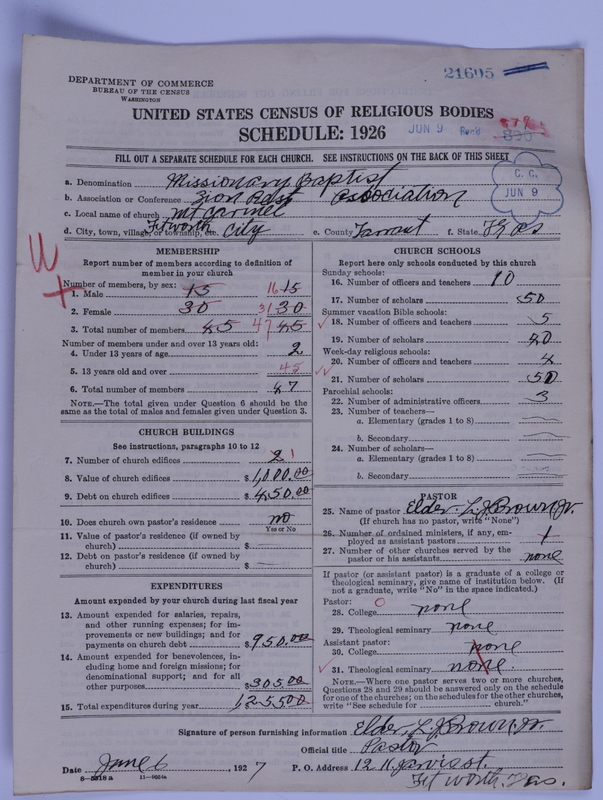 21695
DEPARTMENT OF COMMERCE
BUREAU OF THE CENSUS
WASHINGTON
UNITED STATES CENSUS OF RELIGIOUS BODIES
SCHEDULE: 1926
JUN 9 Rec'd
FILL OUT A SEPARATE SCHEDULE FOR EACH CHURCH. SEE INSTRUCTIONS ON THE BACK OF THIS SHEET
C. C.
JUN 9
a. Denomination Missionary Baptist
b. Association or Conference Zion Rest Association
c. Local name of church Mt Carmel
d. City, town, village, or township, etc. Ft Worth City e. County Tarrant f. State Texas
MEMBERSHIP
Report number of members according to definition of
member in your church
Number of members, by sex:
1. Male 15 16 15
2. Female 30 31 30
3. Total number of members 45 47 45
Number of members under and over 13 years old:
4. Under 13 years of age 2
5. 13 years old and over 45
6. Total number of members 47
NOTE.—The total given under Question 6 should be
the same as the total of males and females given under Question 3.
CHURCH BUILDINGS
See instructions, paragraphs 10 to 12
7. Number of church edifices 2 1
8. Value of church edifices $1,000.00
9. Debt on church edifices $450.00
10. Does church own pastor's residence no
Yes or No
11. Value of pastor's residence (if owned by
church) $
12. Debt on pastor's residence (if owned by
church) $
EXPENDITURES
Amount expended by your church during last fiscal year
13. Amount expended for salaries, repairs,
and other running expenses; for im-
provements or new buildings; and for
payments on church debt $950.00
14. Amount expended for benevolences, in-
cluding home and foreign missions; for
denominational support; and for all
other purposes $305.00
15. Total expenditures during year 1,255.00
CHURCH SCHOOLS
Report here only schools conducted by this church
Sunday schools:
16. Number of officers and teachers 10
17. Number of scholars 50
Summer vacation Bible schools:
18. Number of officers and teachers 5
19. Number of scholars 40
Week-day religious schools:
20. Number of officers and teachers 4
21. Number of scholars 50
Parochial schools:
22. Number of administrative officers 3
23. Number of teachers—
a. Elementary (grades 1 to 8)
b. Secondary
24. Number of scholars—
a. Elementary (grades 1 to 8)
b. Secondary
PASTOR
25. Name of pastor Elder L. J. Brown Jr.
(If church has no pastor, write "None")
26. Number of ordained ministers, if any, em-
ployed as assistant pastors 1
27. Number of other churches served by the
pastor or his assistants none
If pastor (or assistant pastor) is a graduate of a college or
theological seminary, give name of institution below. (If
not a graduate, write "No" in the space indicated.)
Pastor:
28. College none
29. Theological seminary none
Assistant pastor:
30. College none
31. Theological seminary none.
NOTE.—Where one pastor serves two or more churches,
Questions 28 and 29 should be answered only on the schedule
for one of the churches; on the schedules for the other churches,
write "See schedule for church."
Signature of person furnishing information Elder L. J. Brown Jr.
Official title Pastor
Date June 6, 1927 P. O. Address
Ft Worth, Tex.
8—5318 a 11—9024a